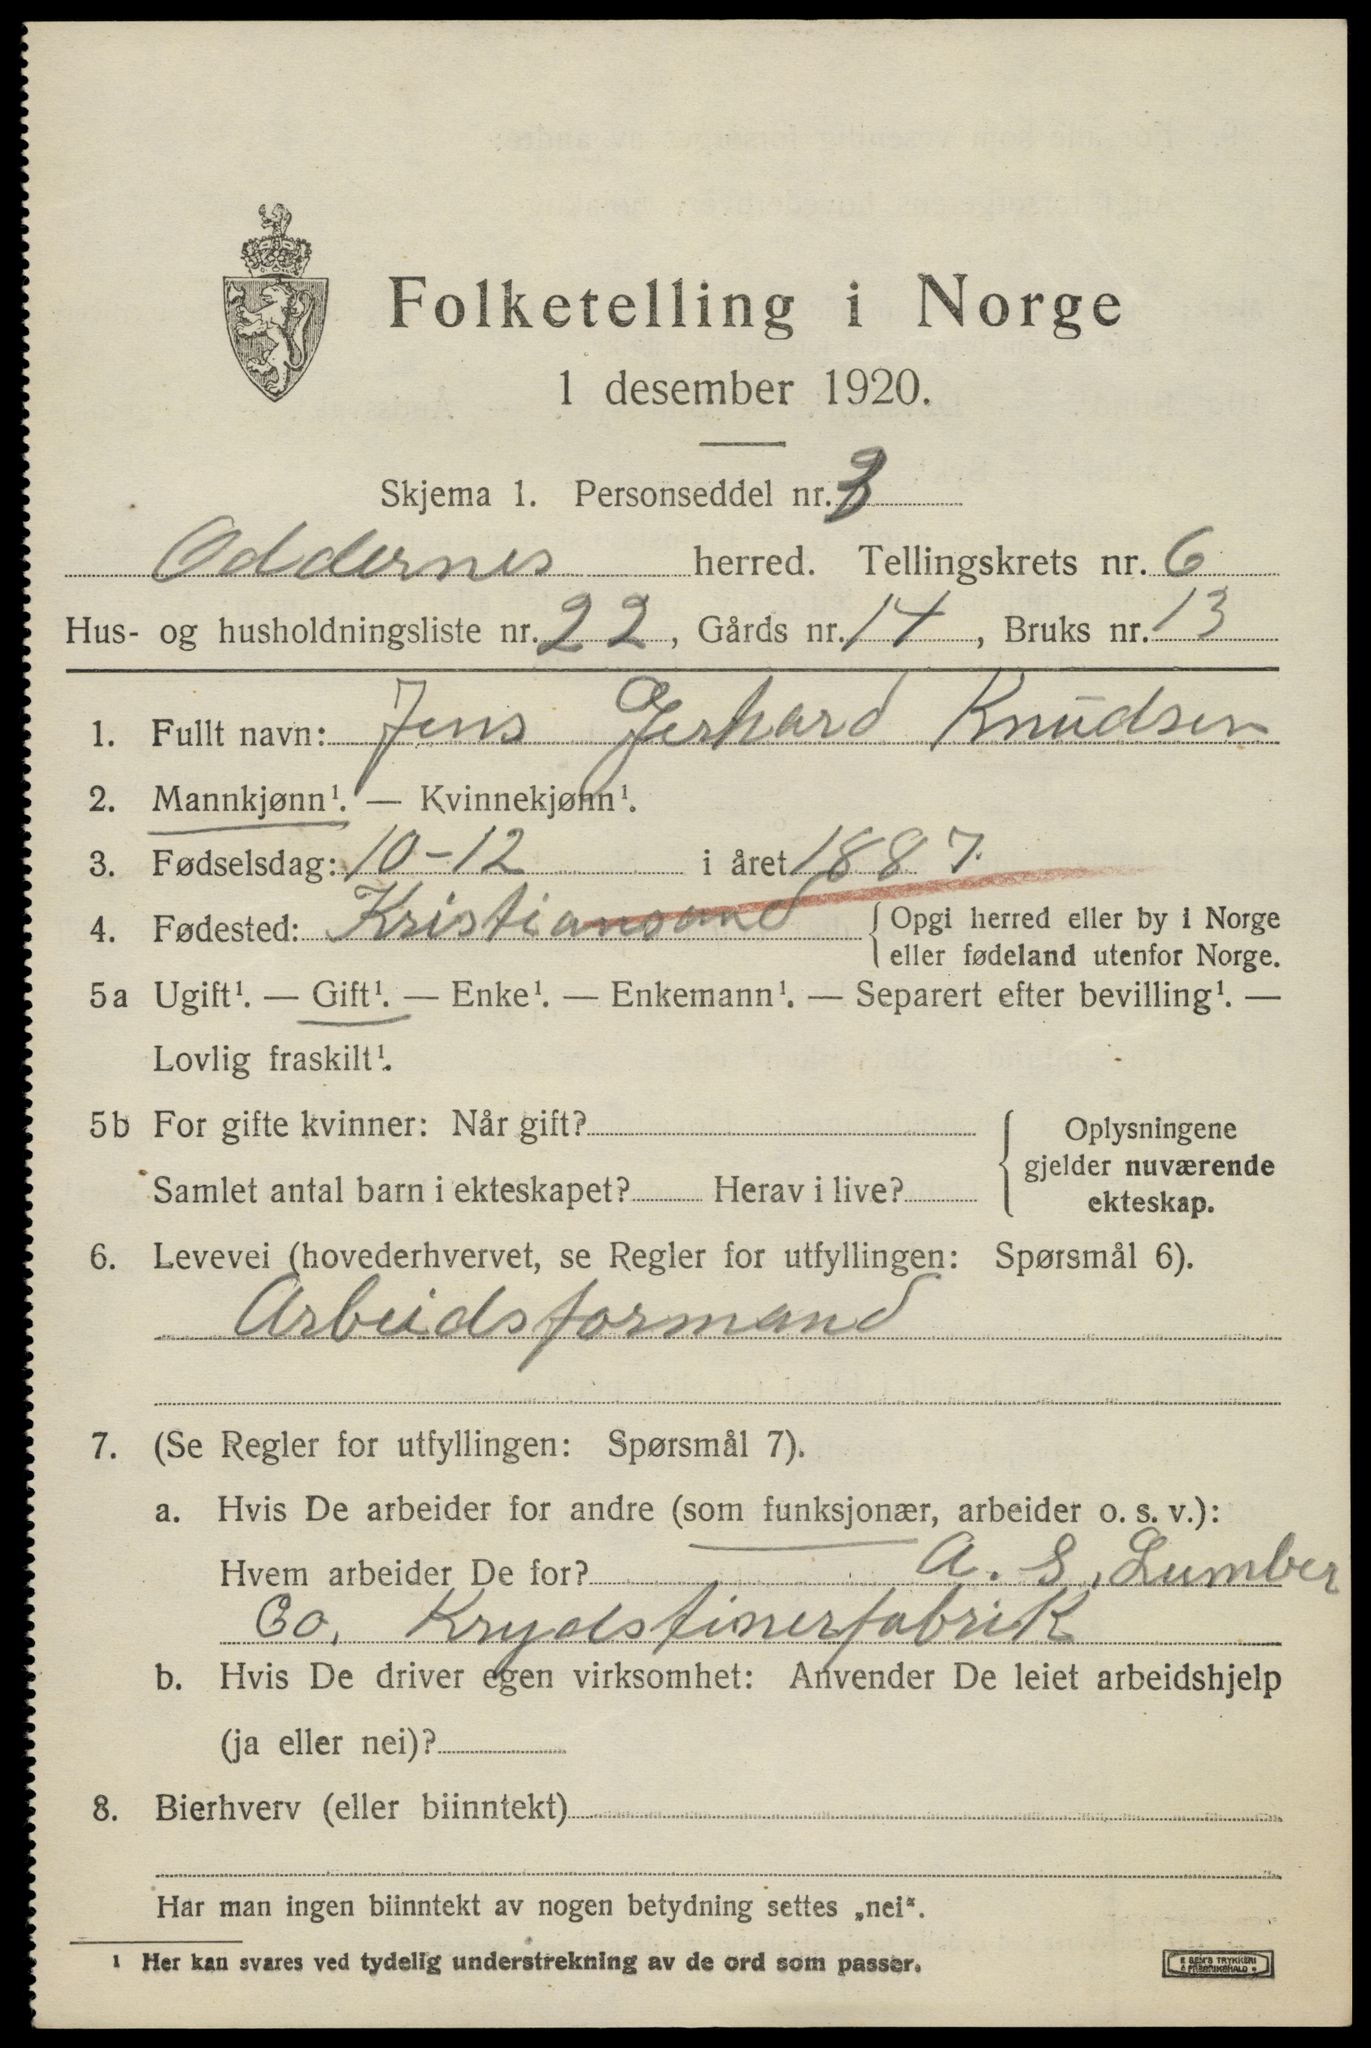 Folketelling i Norge
1 desember 1920.
Skjema 1. Personseddel nr.
Oddernes herred. Tellingskrets nr. 6
Hus- og husholdningsliste nr. 22, Gårds nr. 14, Bruks nr. 13
1. Fullt navn: Jens Gerhard Knudsen
2. Mannkjønn¹. — Kvinnekjønn¹.
3. Fødselsdag: 10-12 i året 1887.
4. Fødested: Kristiansand { Opgi herred eller by i Norge
eller fødeland utenfor Norge.
5a Ugift¹. — Gift¹. — Enke¹. — Enkemann¹. — Separert efter bevilling¹. —
Lovlig fraskilt¹.
5b For gifte kvinner: Når gift?
Samlet antal barn i ekteskapet? Herav i live?
{ Oplysningene
gjelder nuværende
ekteskap.
6. Levevei (hovederhvervet, se Regler for utfyllingen: Spørsmål 6).
Arbeidsformand
7. (Se Regler for utfyllingen: Spørsmål 7).
a. Hvis De arbeider for andre (som funksjonær, arbeider o. s. v.):
Hvem arbeider De for? A. S. Lumber
Co. Krydsfinerfabrik
b. Hvis De driver egen virksomhet: Anvender De leiet arbeidshjelp
(ja eller nei)?
8. Bierhverv (eller biinntekt)
Har man ingen biinntekt av nogen betydning settes „nei“.
¹ Her kan svares ved tydelig understrekning av de ord som passer.